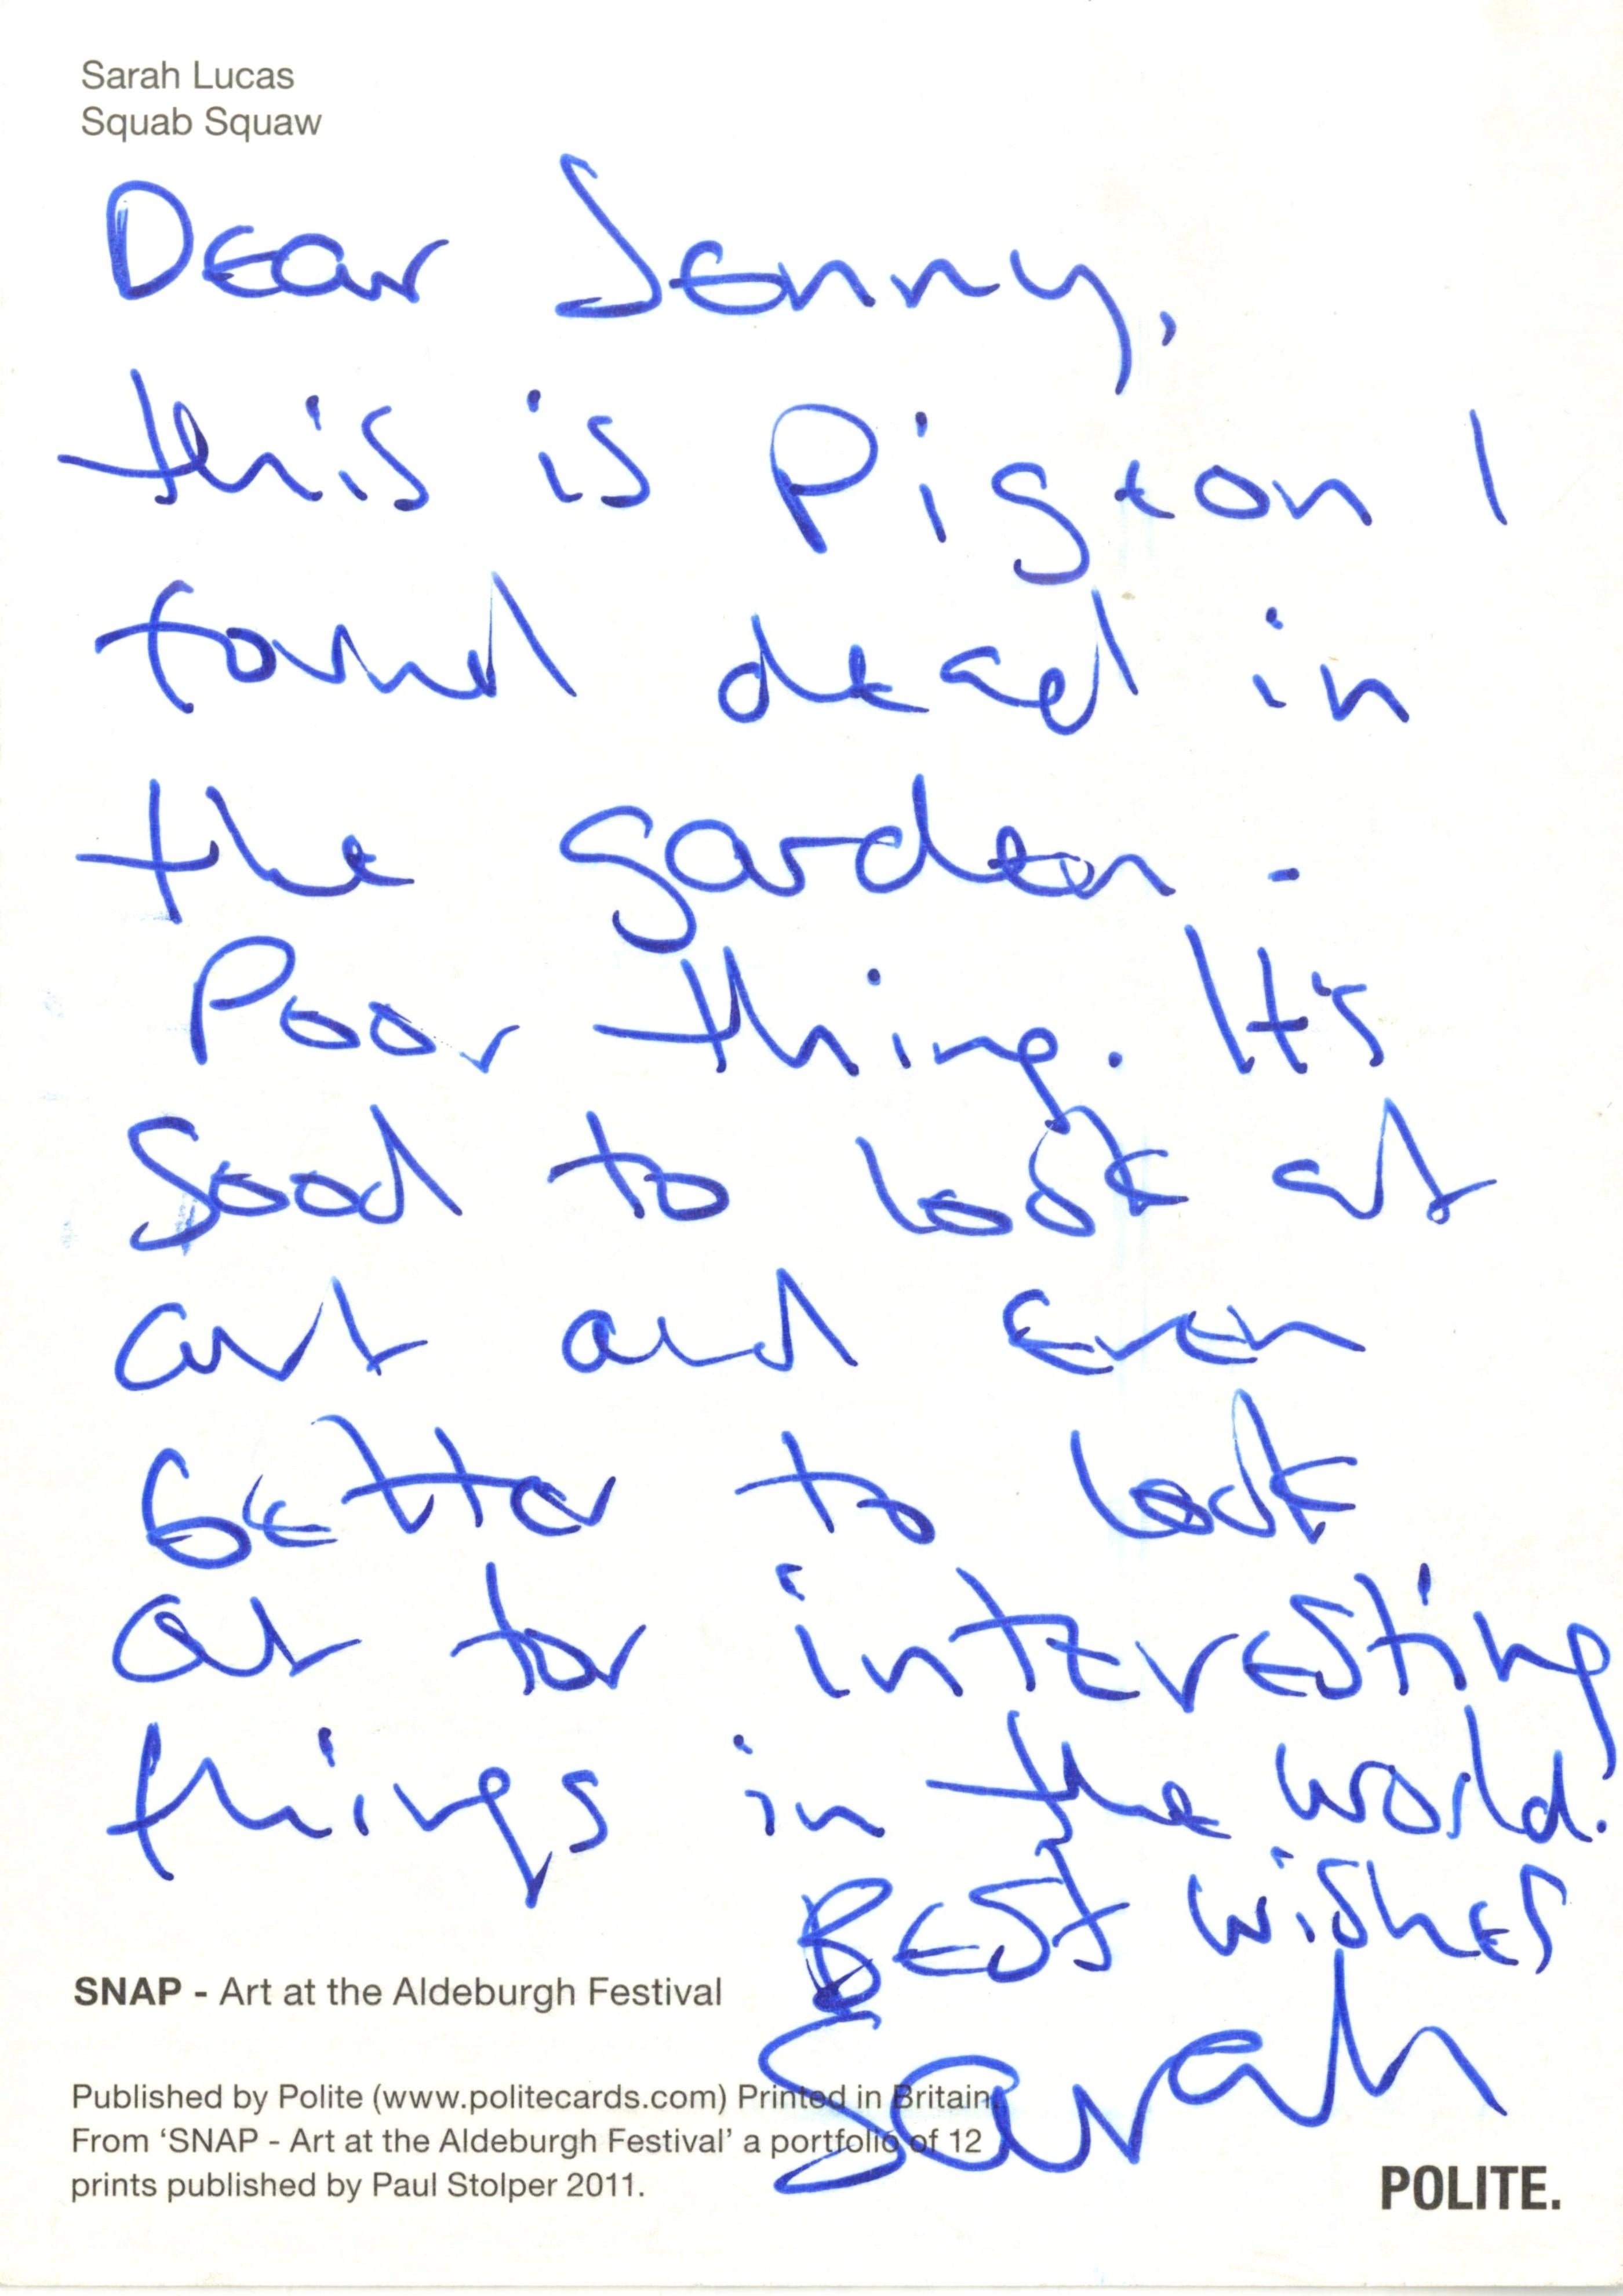 Sarah Lucas
Squab Squaw
Dear Jenny,
this is Pigeon I
found dead in
the garden -
Poor thing. It's
good to look at
art and even
better to look
at for interesting
things in the world.
Best wishes
Sarah
SNAP - Art at the Aldeburgh Festival
Published by Polite (www.politecards.com) Printed in Britain.
From ‘SNAP - Art at the Aldeburgh Festival’ a portfolio of 12
prints published by Paul Stolper 2011.
POLITE.